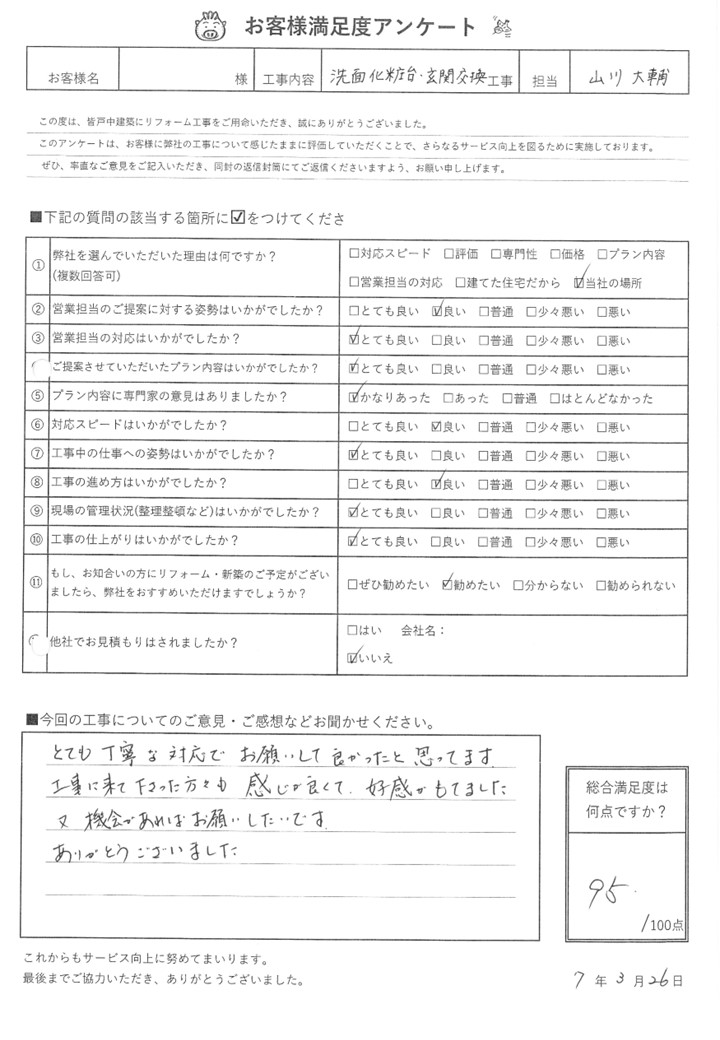 お客様満足度アンケート
お客様名 様 工事内容 洗面化粧台・玄関交換工事 担当 山川 大輔
この度は、皆戸中建築にリフォーム工事をご用命いただき、誠にありがとうございました。
このアンケートは、お客様に弊社の工事について感じたままに評価していただくことで、さらなるサービス向上を図るために実施しております。
ぜひ、率直なご意見をご記入いただき、同封の返信封筒にてご返信くださいますよう、お願い申し上げます。
■下記の質問の該当する箇所に☑をつけてくださ
① 弊社を選んでいただいた理由は何ですか？
(複数回答可)
□対応スピード □評価 □専門性 □価格 □プラン内容
□営業担当の対応 □建てた住宅だから ☑当社の場所
② 営業担当のご提案に対する姿勢はいかがでしたか？ □とても良い ☑良い □普通 □少々悪い □悪い
③ 営業担当の対応はいかがでしたか？ ☑とても良い □良い □普通 □少々悪い □悪い
ご提案させていただいたプラン内容はいかがでしたか？ ☑とても良い □良い □普通 □少々悪い □悪い
⑤ プラン内容に専門家の意見はありましたか？ ☑かなりあった □あった □普通 □ほとんどなかった
⑥ 対応スピードはいかがでしたか？ □とても良い ☑良い □普通 □少々悪い □悪い
⑦ 工事中の仕事への姿勢はいかがでしたか？ ☑とても良い □良い □普通 □少々悪い □悪い
⑧ 工事の進め方はいかがでしたか？ □とても良い ☑良い □普通 □少々悪い □悪い
⑨ 現場の管理状況(整理整頓など)はいかがでしたか？ ☑とても良い □良い □普通 □少々悪い □悪い
⑩ 工事の仕上がりはいかがでしたか？ ☑とても良い □良い □普通 □少々悪い □悪い
⑪ もし、お知合いの方にリフォーム・新築のご予定がござい
ましたら、弊社をおすすめいただけますでしょうか？
□ぜひ勧めたい ☑勧めたい □分からない □勧められない
他社でお見積もりはされましたか？
□はい 会社名：
☑いいえ
■今回の工事についてのご意見・ご感想などお聞かせください。
とても丁寧な対応で お願いして良かったと思ってます
工事に来て下さった方々も 感じが良くて、好感がもてました
又 機会があればお願いしたいです
ありがとうございました
総合満足度は
何点ですか？
95
/100点
これからもサービス向上に努めてまいります。
最後までご協力いただき、ありがとうございました。
7 年 3 月 26 日